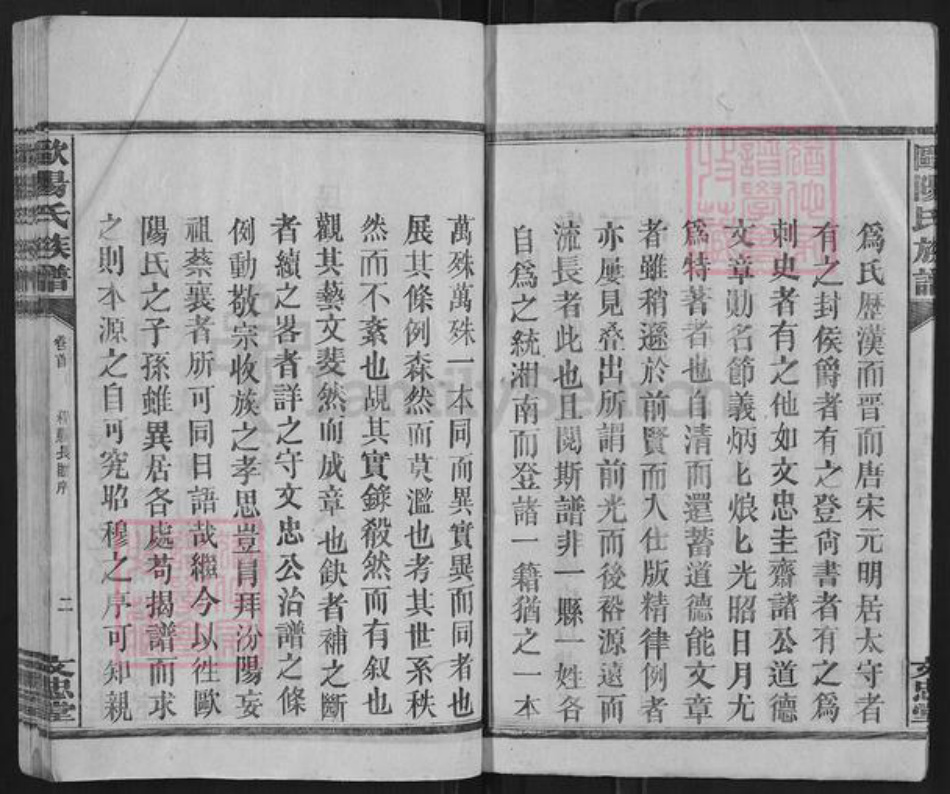 爲氏歷漢而晋而唐宋元明居太守者
有之封侯爵者有之登尙書者有之爲
刺史者有之他如文忠圭齋諸公道德
文章勛名節義炳匕烺匕光昭日月尤
爲特著者也自清而還蓄道德能文章
者雖稍遜於前賢而入仕版精律例者
亦屢見叠出所謂前光而後裕源遠而
流長者此也且閱斯譜非一縣一姓各
自爲之統湘南而登諸一籍猶之一本
萬殊萬殊一本同而異實異而同者也
展其條例森然而莫濫也考其世系秩
然而不紊也覘其實錄殺然而有叙也
觀其藝文斐然而成章也缺者補之斷
者續之畧者詳之守文忠公治譜之條
例動敬宗收族之孝思豈肯拜汾陽妄
祖蔡襄者所可同日語哉繼今以往歐
陽氏之子孫雖異居各處苟揭譜而求
之則本源之自可究昭穆之序可知親
歐陽氏族譜
卷首
二
文忠堂
歐陽氏族譜
文忠堂
FamilySearch